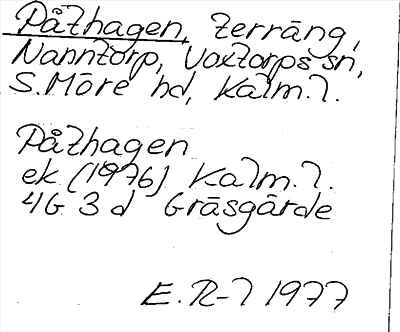 Påthagen, terräng,
Nanntorp, Voxtorps sn,
S. Möre hd, Kalm. l.
Påthagen
ek. (1976) Kalm. l.
4G 3 d Gräsgärde
E. R-l 1977